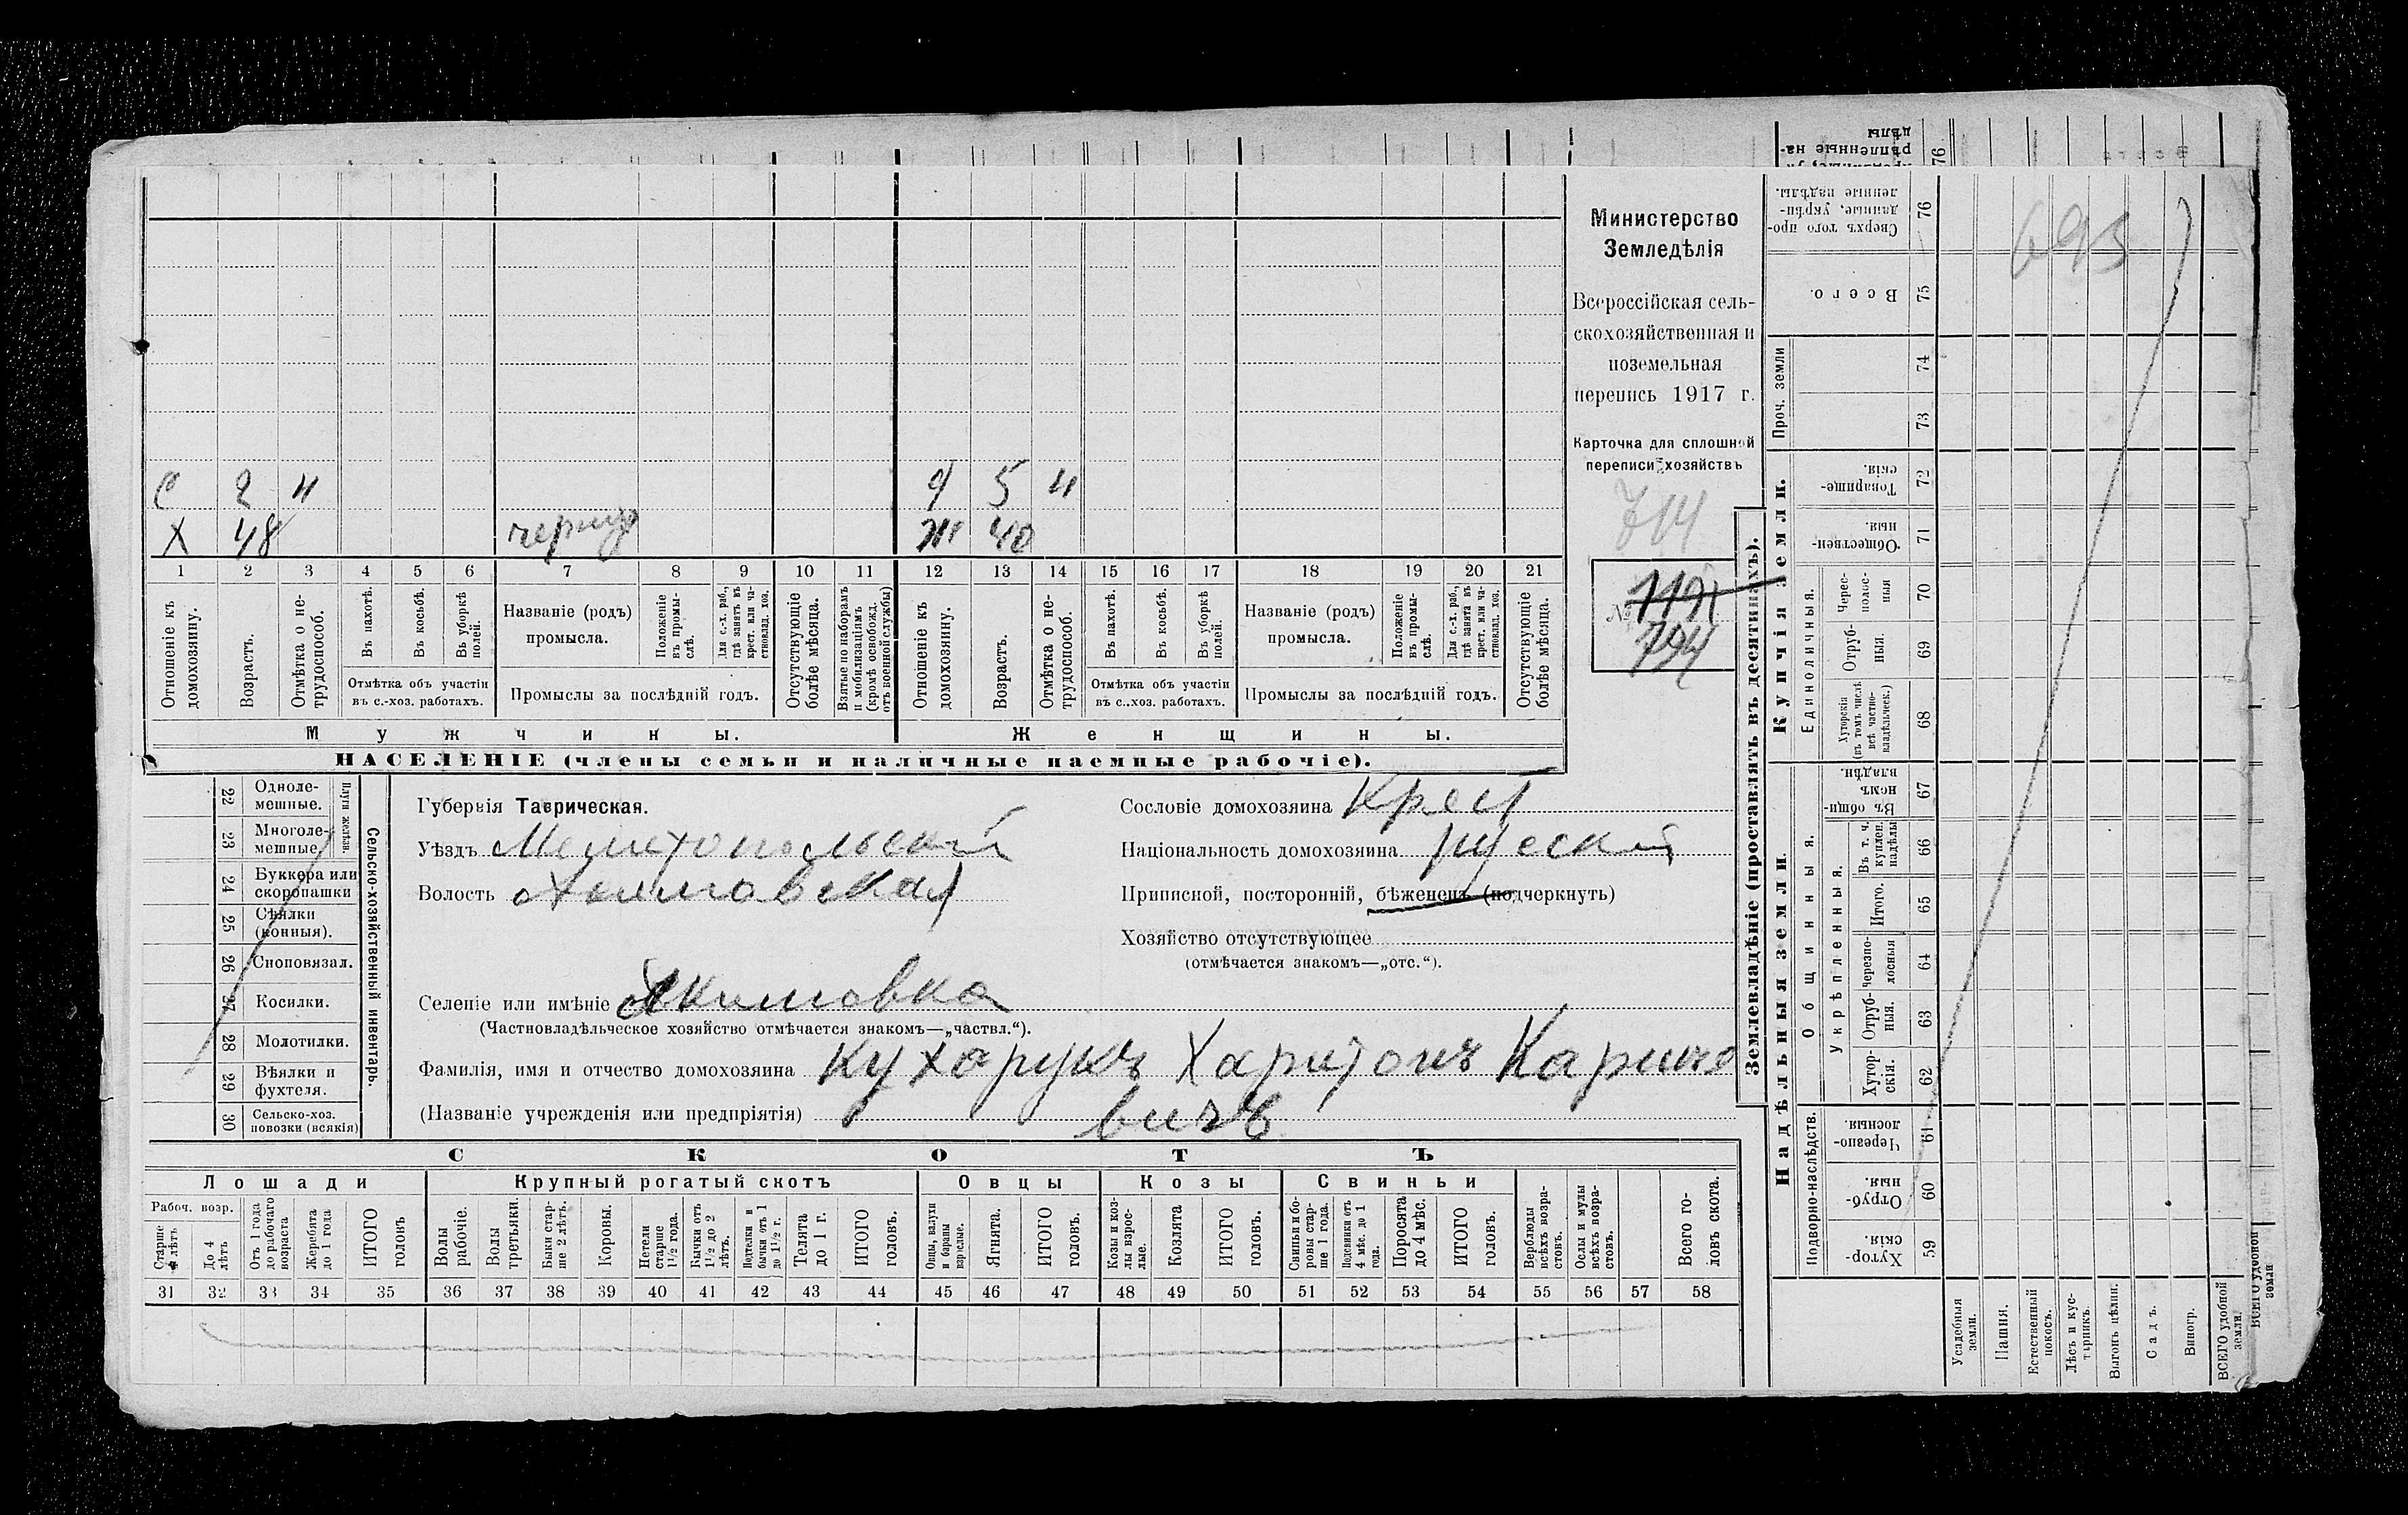 Министерство
Земледѣлія
Всероссійская сель-
скохозяйственная и
поземельная
перепись 1917 г.
Карточка для сплошной
переписи хозяйствъ
714
№ 1191
794
С 2 н
Х 48
5 н
Ж 40
1 2 3 4 5 6 7 8 9 10 11 12 13 14 15 16 17 18 19 20 21
Отношеніе къ домохозяину.
Возрастъ.
Отмѣтка о не-трудоспособ.
Въ пахотѣ.
Въ косьбѣ.
Въ уборкѣ полей.
Отмѣтка объ участіи
въ с.-хоз. работахъ.
Названіе (родъ)
промысла.
Положеніе въ промы-слѣ.
Для с.-х. раб., гдѣ занятъ въ крест. или ча-стновлад. хоз.
Промыслы за послѣдній годъ.
Отсутствующіе болѣе мѣсяца.
Взятые по наборамъ и мобилизаціямъ (кромѣ освобожд. отъ военной службы)
Отношеніе къ домохозяину.
Возрастъ.
Отмѣтка о не-трудоспособ.
Въ пахотѣ.
Въ косьбѣ.
Въ уборкѣ полей.
Отмѣтка объ участіи
въ с.-хоз. работахъ.
Названіе (родъ)
промысла.
Положеніе въ промы-слѣ.
Для с.-х. раб., гдѣ занята въ крест. или ча-стновлад. хоз.
Промыслы за послѣдній годъ.
Отсутствующіе болѣе мѣсяца.
Мужчины.
Женщины.
НАСЕЛЕНІЕ (члены семьи и наличные наемные рабочіе).
Сельско-хозяйственный инвентарь.
Плуги желѣзн.
22 Одноле-мешные.
23 Многоле-мешные.
24 Буккера или скоропашки
25 Сѣялки (конныя).
26 Сноповязал.
27 Косилки.
28 Молотилки.
29 Вѣялки и фухтеля.
30 Сельско-хоз. повозки (всякія)
Губернія Таврическая.
Уѣздъ Мелитопольскій
Волость Акимовская
Селеніе или имѣніе Акимовка
(Частновладѣльческое хозяйство отмѣчается знакомъ—„частвл.“).
Фамилія, имя и отчество домохозяина Кухарукъ Харитонъ Карпо
(Названіе учрежденія или предпріятія) вичъ
Сословіе домохозяина Крест
Національность домохозяина
Приписной, посторонній, бѣженецъ (подчеркнуть)
Хозяйство отсутствующее
(отмѣчается знакомъ—„отс.“).
СКОТЪ
Лошади
Крупный рогатый скотъ
Овцы
Козы
Свиньи
Рабоч. возр.
Старше 4 лѣтъ
До 4 лѣтъ
Отъ 1 года до рабочаго возраста
Жеребята до 1 года
ИТОГО головъ
Волы рабочіе.
Волы третьяки.
Быки стар-ше 2 лѣтъ.
Коровы.
Нетели старше 1 1/2 года.
Бычки отъ 1 1/2 до 2 лѣтъ.
Подтелки и бычки отъ 1 до 1 1/2 г.
Телята до 1 г.
ИТОГО головъ.
Овцы, валухи и бараны взрослые.
Ягнята.
ИТОГО головъ.
Козы и коз-лы взрос-лые.
Козлята
ИТОГО головъ.
Свиньи и бо-ровы стар-ше 1 года.
Подсвинки отъ 4 мѣс. до 1 года.
Поросята до 4 мѣс.
ИТОГО головъ.
Верблюды всѣхъ возра-стовъ.
Ослы и мулы всѣхъ возра-стовъ.
Всего го-ловъ скота.
31 32 33 34 35 36 37 38 39 40 41 42 43 44 45 46 47 48 49 50 51 52 53 54 55 56 57 58
Землевладѣніе (проставлять въ десятинахъ).
Купчія земли.
Надѣльныя земли.
Проч. земли
Единоличныя.
Общинныя.
Укрѣпленныя.
Подворно-наслѣдств.
76 Сверхъ того про-данные, укрѣп-ленные надѣлы.
75 Всего.
74
73
72 Товарище-скія.
71 Обществен-ныя.
70 Черес-полос-ныя
69 Отруб-ныя.
68 Хуторскія (въ томъ числѣ всѣ частно-владѣльческ.)
67 Въ общин-номъ владѣн.
66 Въ т. ч. куплен. надѣлы
65 Итого.
64 Черезпо-лосныя
63 Отруб-ныя.
62 Хутор-скія.
61 Черезпо-лосныя.
60 Отруб-ныя.
59 Хутор-скія.
Усадебныя земли.
Пашня.
Естественный покосъ.
Лѣсъ и кус-тарникъ.
Выгонъ цѣлин.
Садъ.
Виногр.
ВСЕГО удобной земли.
693
76
рѣпленные на-
дѣлы
ВСЕГО удобной
земли